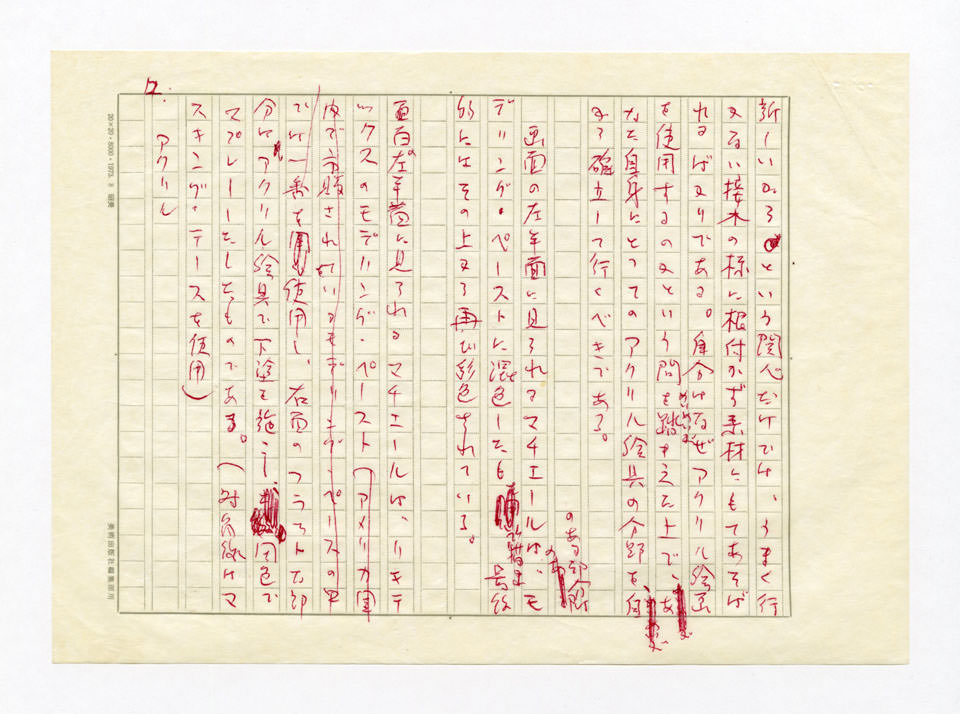 新しいからという関心だけでは、うまく行
かない接木の様に根付かず素材にもてあそば
れるばかりである。自分はなぜアクリル絵画
を使用するのかという問を踏まえた上で、あ
なた自身にとってのアクリル絵具の分野を、自
から確立して行くべきである。
画面の左半面に見られるマチエールは、モ
デリング・ペーストに混色したも
のある部分
的にはその上から再び彩色されている。
画面左半面に見られるマチエールは、リキテ
ックスのモデリング・ペースト(アメリカ軍
内で市販されているモデリング・ペースの中
では一番を使用し、右面のフラットな部
分は、アクリル絵具で下塗を施し、同色で
スプレーしたものである。(対角線はマ
スキング・テープを使用)
アクリル
12.
20×20・8000・1973. 8 昭東
美術出版社編集部用